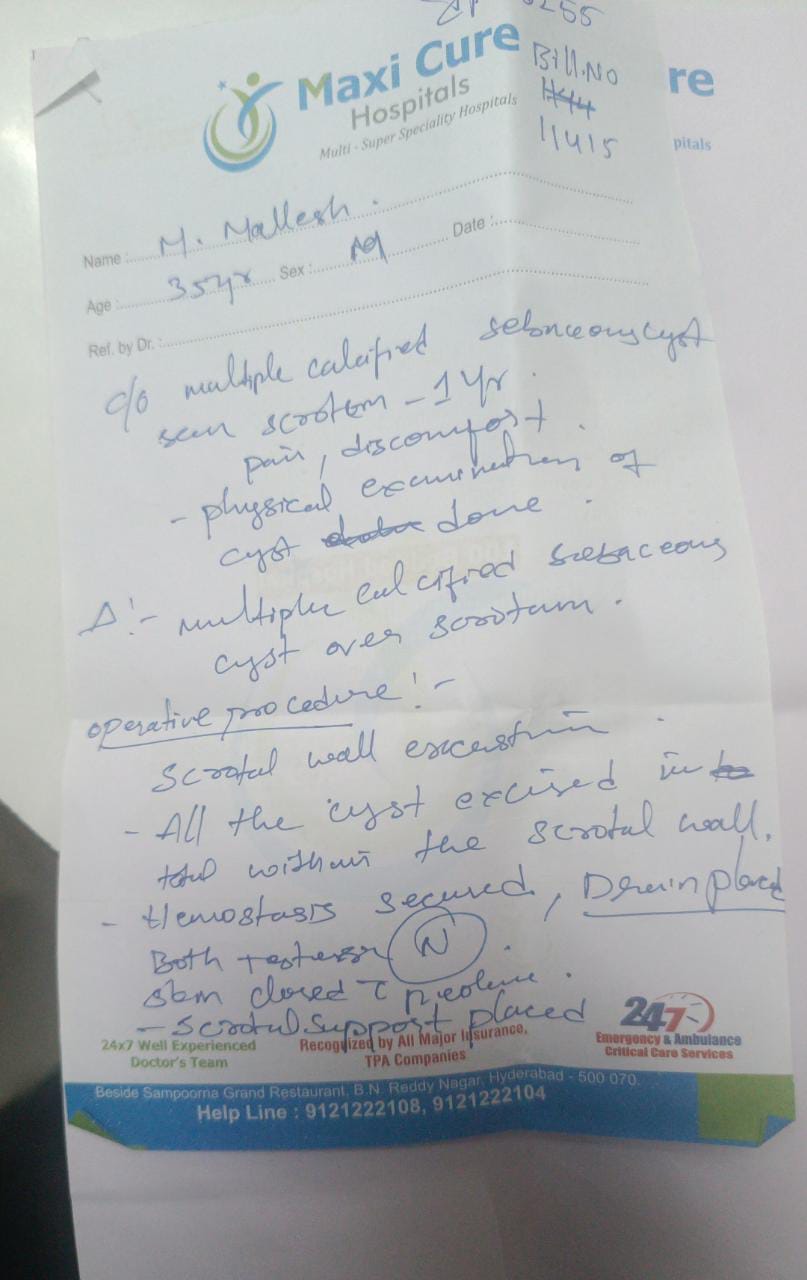 255
Maxi Cure
Hospitals
Multi - Super Speciality Hospitals
Bill.No
11415
re
pitals
Name : M. Mallesh.
Age : 35yr Sex : M Date :
Ref. by Dr. :
c/o multiple calcified sebaceous cyst
scrotum - 1 Yr.
pain, discomfort.
- physical examination of
cyst done.
Δ:- multiple calcified sebaceous
cyst over scrotum.
operative procedure :-
Scrotal wall
- All the cyst excised in
within the scrotal wall.
- Hemostasis secured, Drain placed
Both testes N.
closed
- Scrotal support placed
24x7 Well Experienced
Doctor's Team
Recognized by All Major Insurance,
TPA Companies
247
Emergency & Ambulance
Critical Care Services
Beside Sampoorna Grand Restaurant, B.N. Reddy Nagar, Hyderabad - 500 070.
Help Line : 9121222108, 9121222104